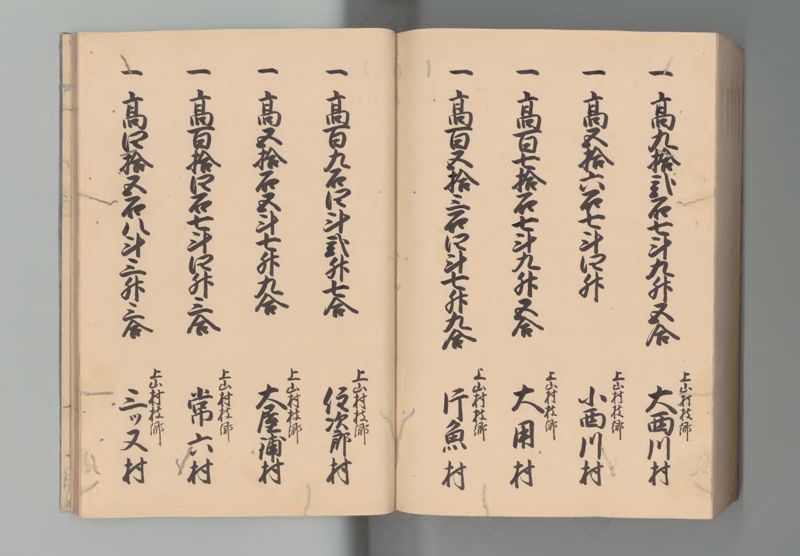 一 高九拾弐石七斗九升五合
上山村枝郷
大西川村
一 高五拾六石七斗四升
上山村枝郷
小西川村
一 高百七拾石七斗九升五合
上山村枝郷
大用村
一 高百五拾三石四斗七升九合
上山村枝郷
片魚村
一 高百九石四斗弐升七合
上山村枝郷
次郎村
一 高五拾石五斗七升九合
上山村枝郷
大屋浦村
一 高百拾四石七斗四升三合
上山村枝郷
常六村
一 高四拾五石八斗三升三合
上山村枝郷
三ッ又村